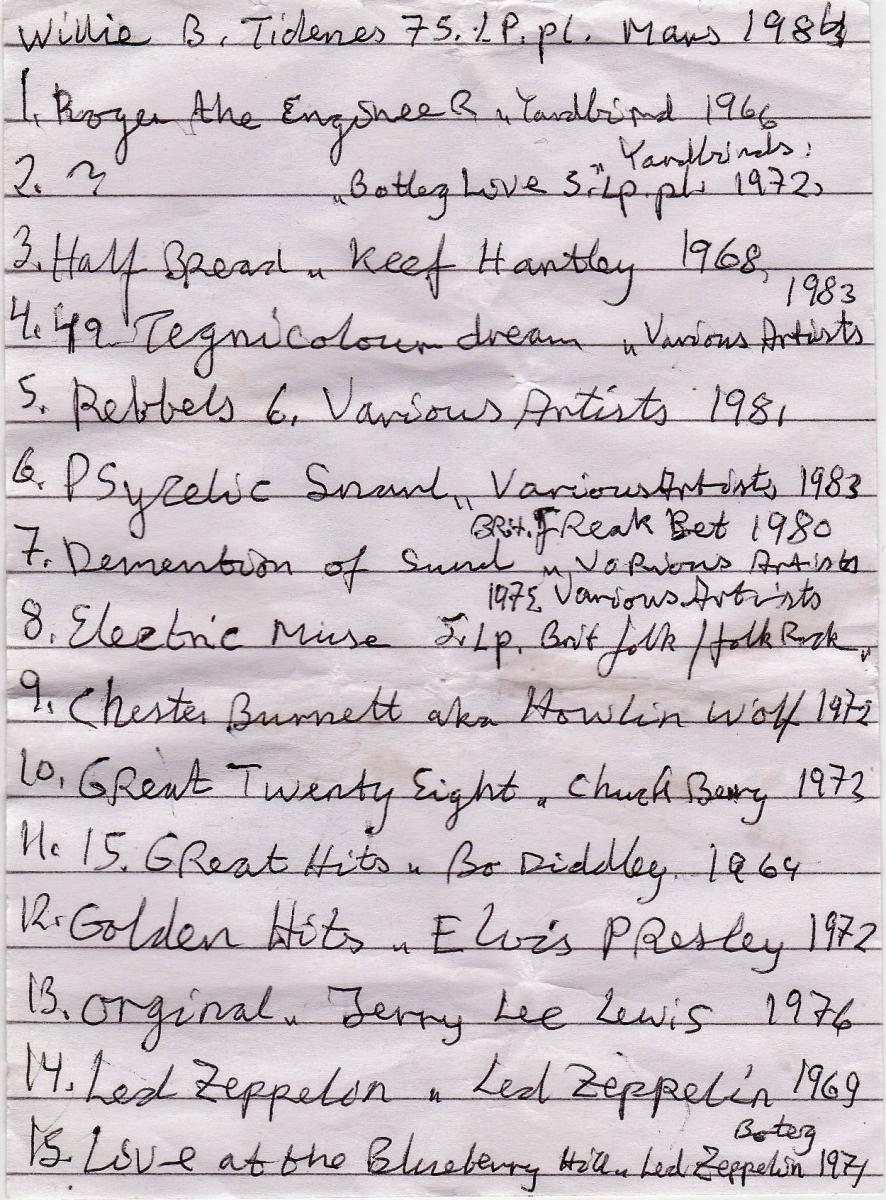 Willie B. Tidenes 75. LP. pl. Mars 1984
1. Roger the EngineeR „ Yardbird 1966
Yardbirds
2. ? „Botleg Live 3. Lp. pl. 1972
3. Half Bread „ Keef Hartley 1968
1983
4. 49 Tegnicolour dream „ Various Artists
5. Rebbels 6. Various Artists 1981
6. PSyzelic Snarl „ Various Artists 1983
BRit. fReak Bet 1980
7. Demention of Sund „ VaRious Artists
1975 Various Artists
8. Electric Muse Lp. Brit folk / folk Rock „
9. Chester Burnett aka Howlin Wolf 1972
10. GReat Twenty Eight „ Chuck Berry 1973
11. 15. GReat Hits „ Bo Diddley. 1964
12. Golden Hits „ Elvis PResley 1972
13. orginal „ Jerry Lee Lewis 1976
14. Led Zeppelin „ Led Zeppelin 1969
Boteg
15. Live at the Blueberry Hill „ Led Zeppelin 1971